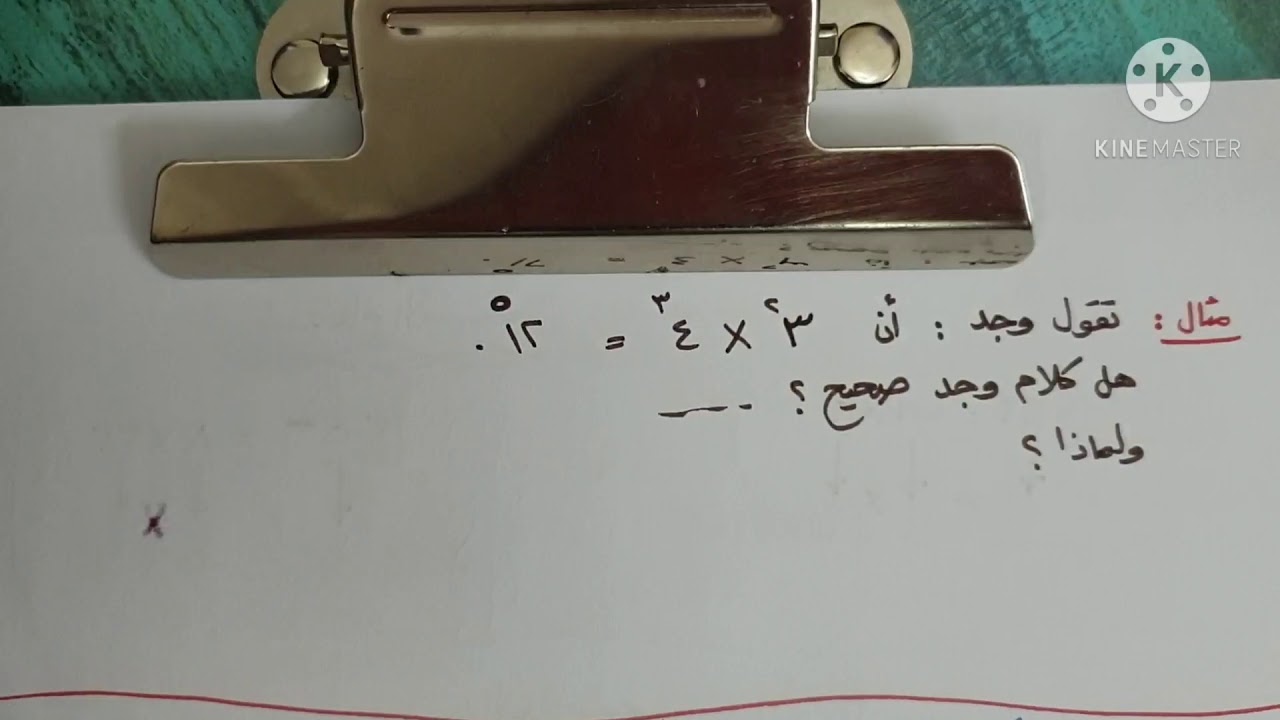 KINEMASTER
مثال : تقول وجد : أن ٣² × ٤³ = ١٢⁵ .
هل كلام وجد صحيح ؟ ــــ
ولماذا ؟
x